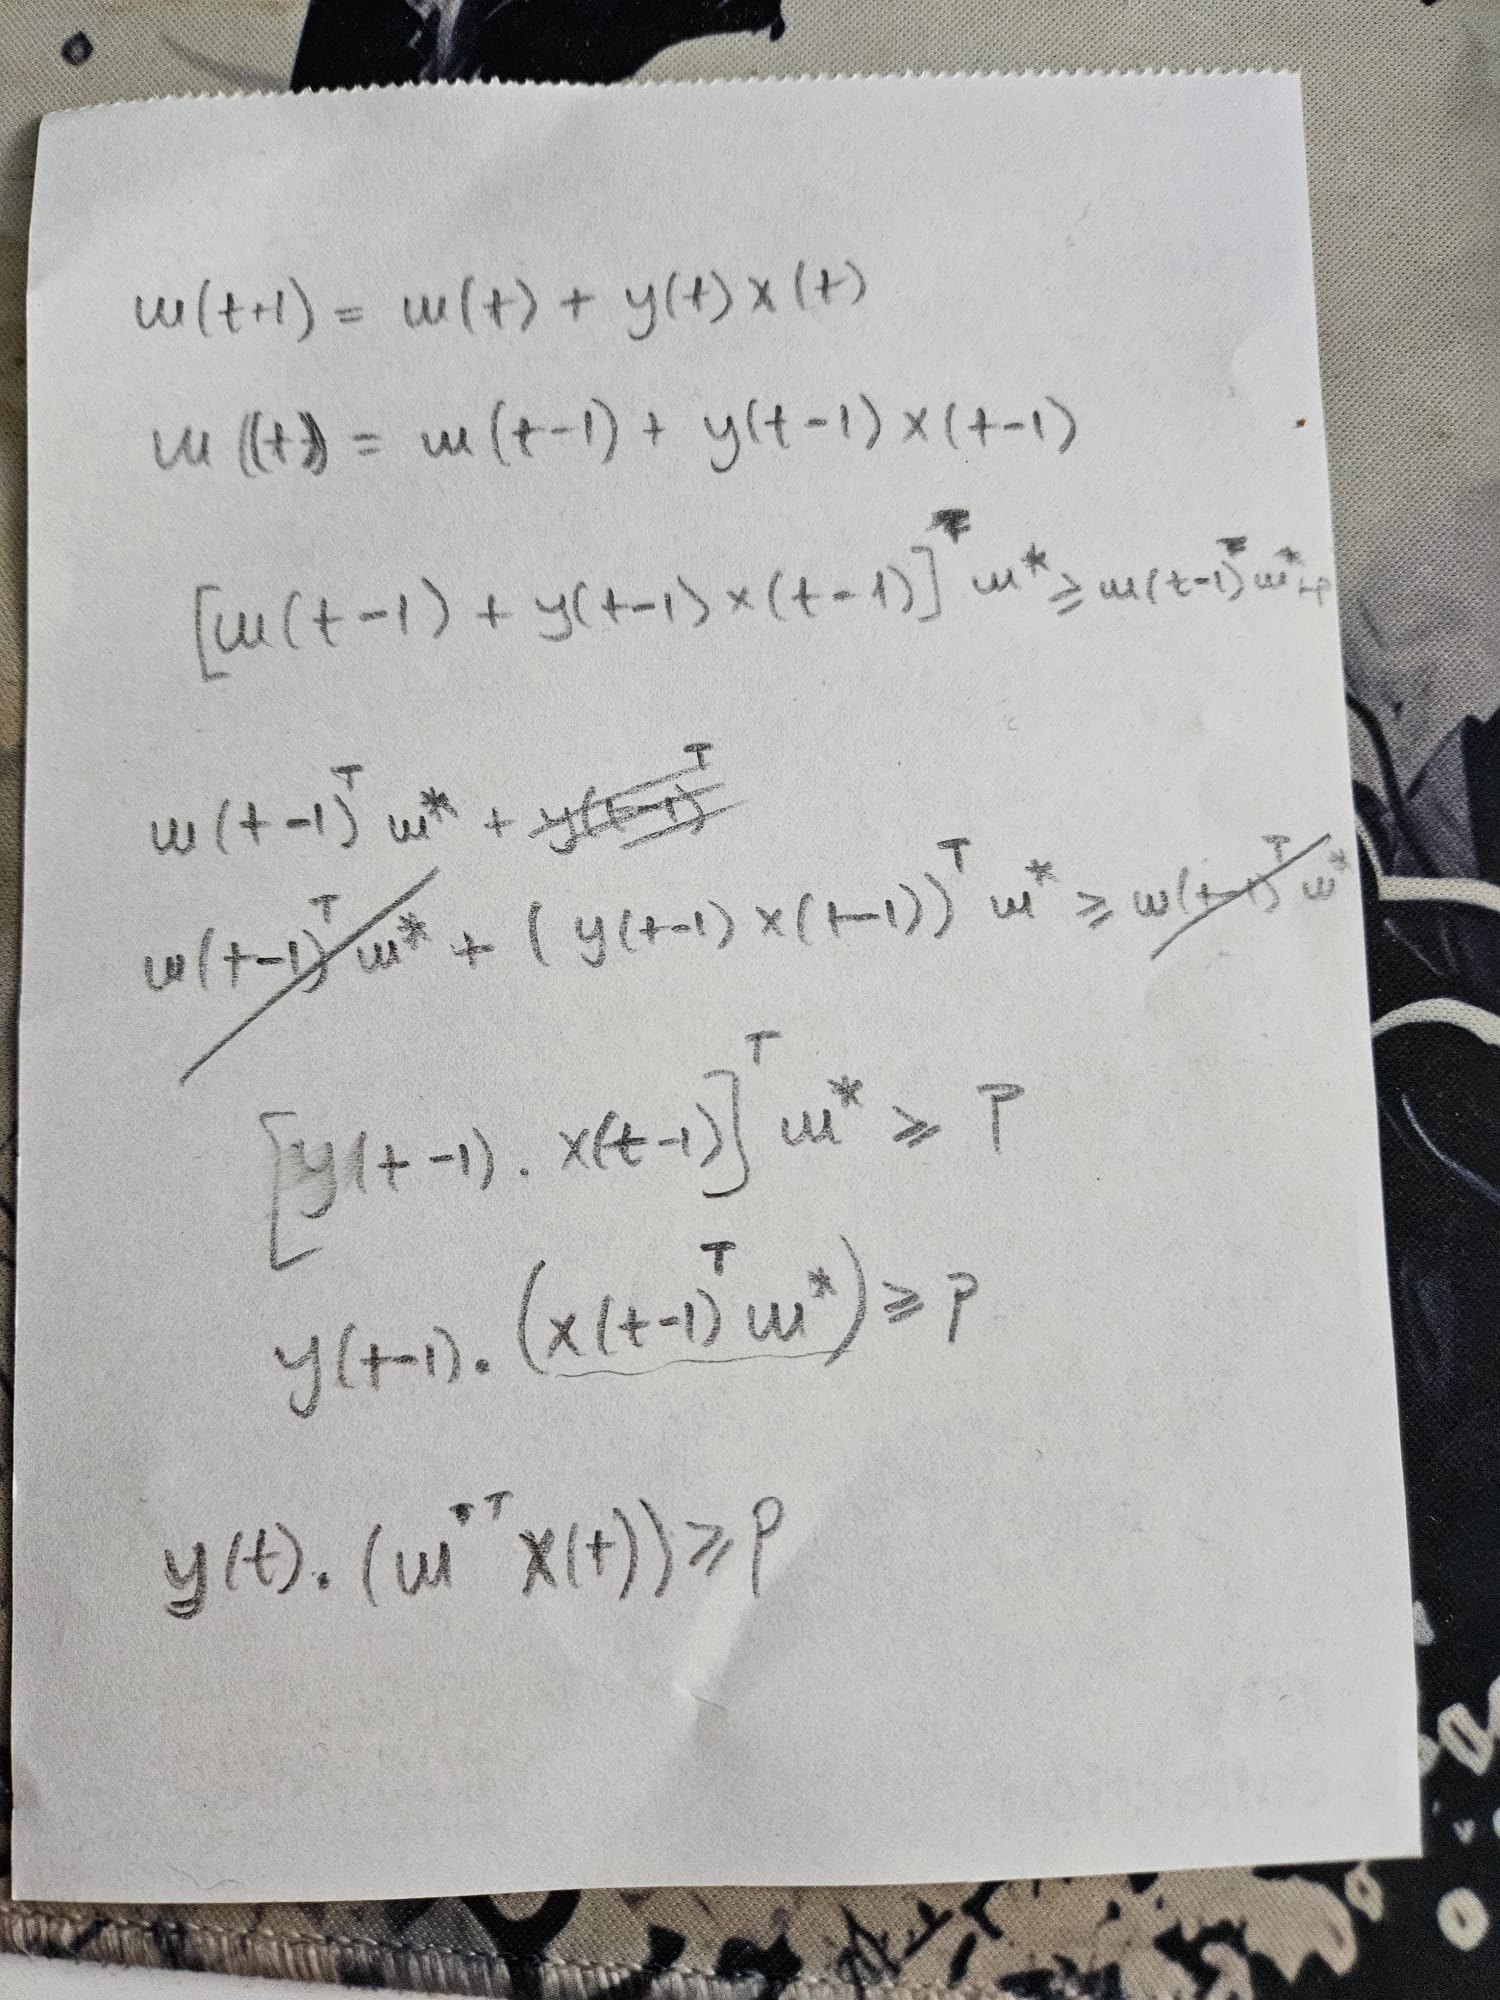 w(t+1) = w(t) + y(t) x(t)
w(t) = w(t-1) + y(t-1) x(t-1)
[w(t-1) + y(t-1) x(t-1)]^T w* ≥ w(t-1)^T w* + ρ
w(t-1)^T w* + y(t-1)^T
w(t-1)^T w* + (y(t-1) x(t-1))^T w* ≥ w(t-1)^T w*
[y(t-1) . x(t-1)]^T w* ≥ ρ
y(t-1) . (x(t-1)^T w*) ≥ ρ
y(t) . (w*^T x(t)) ≥ ρ